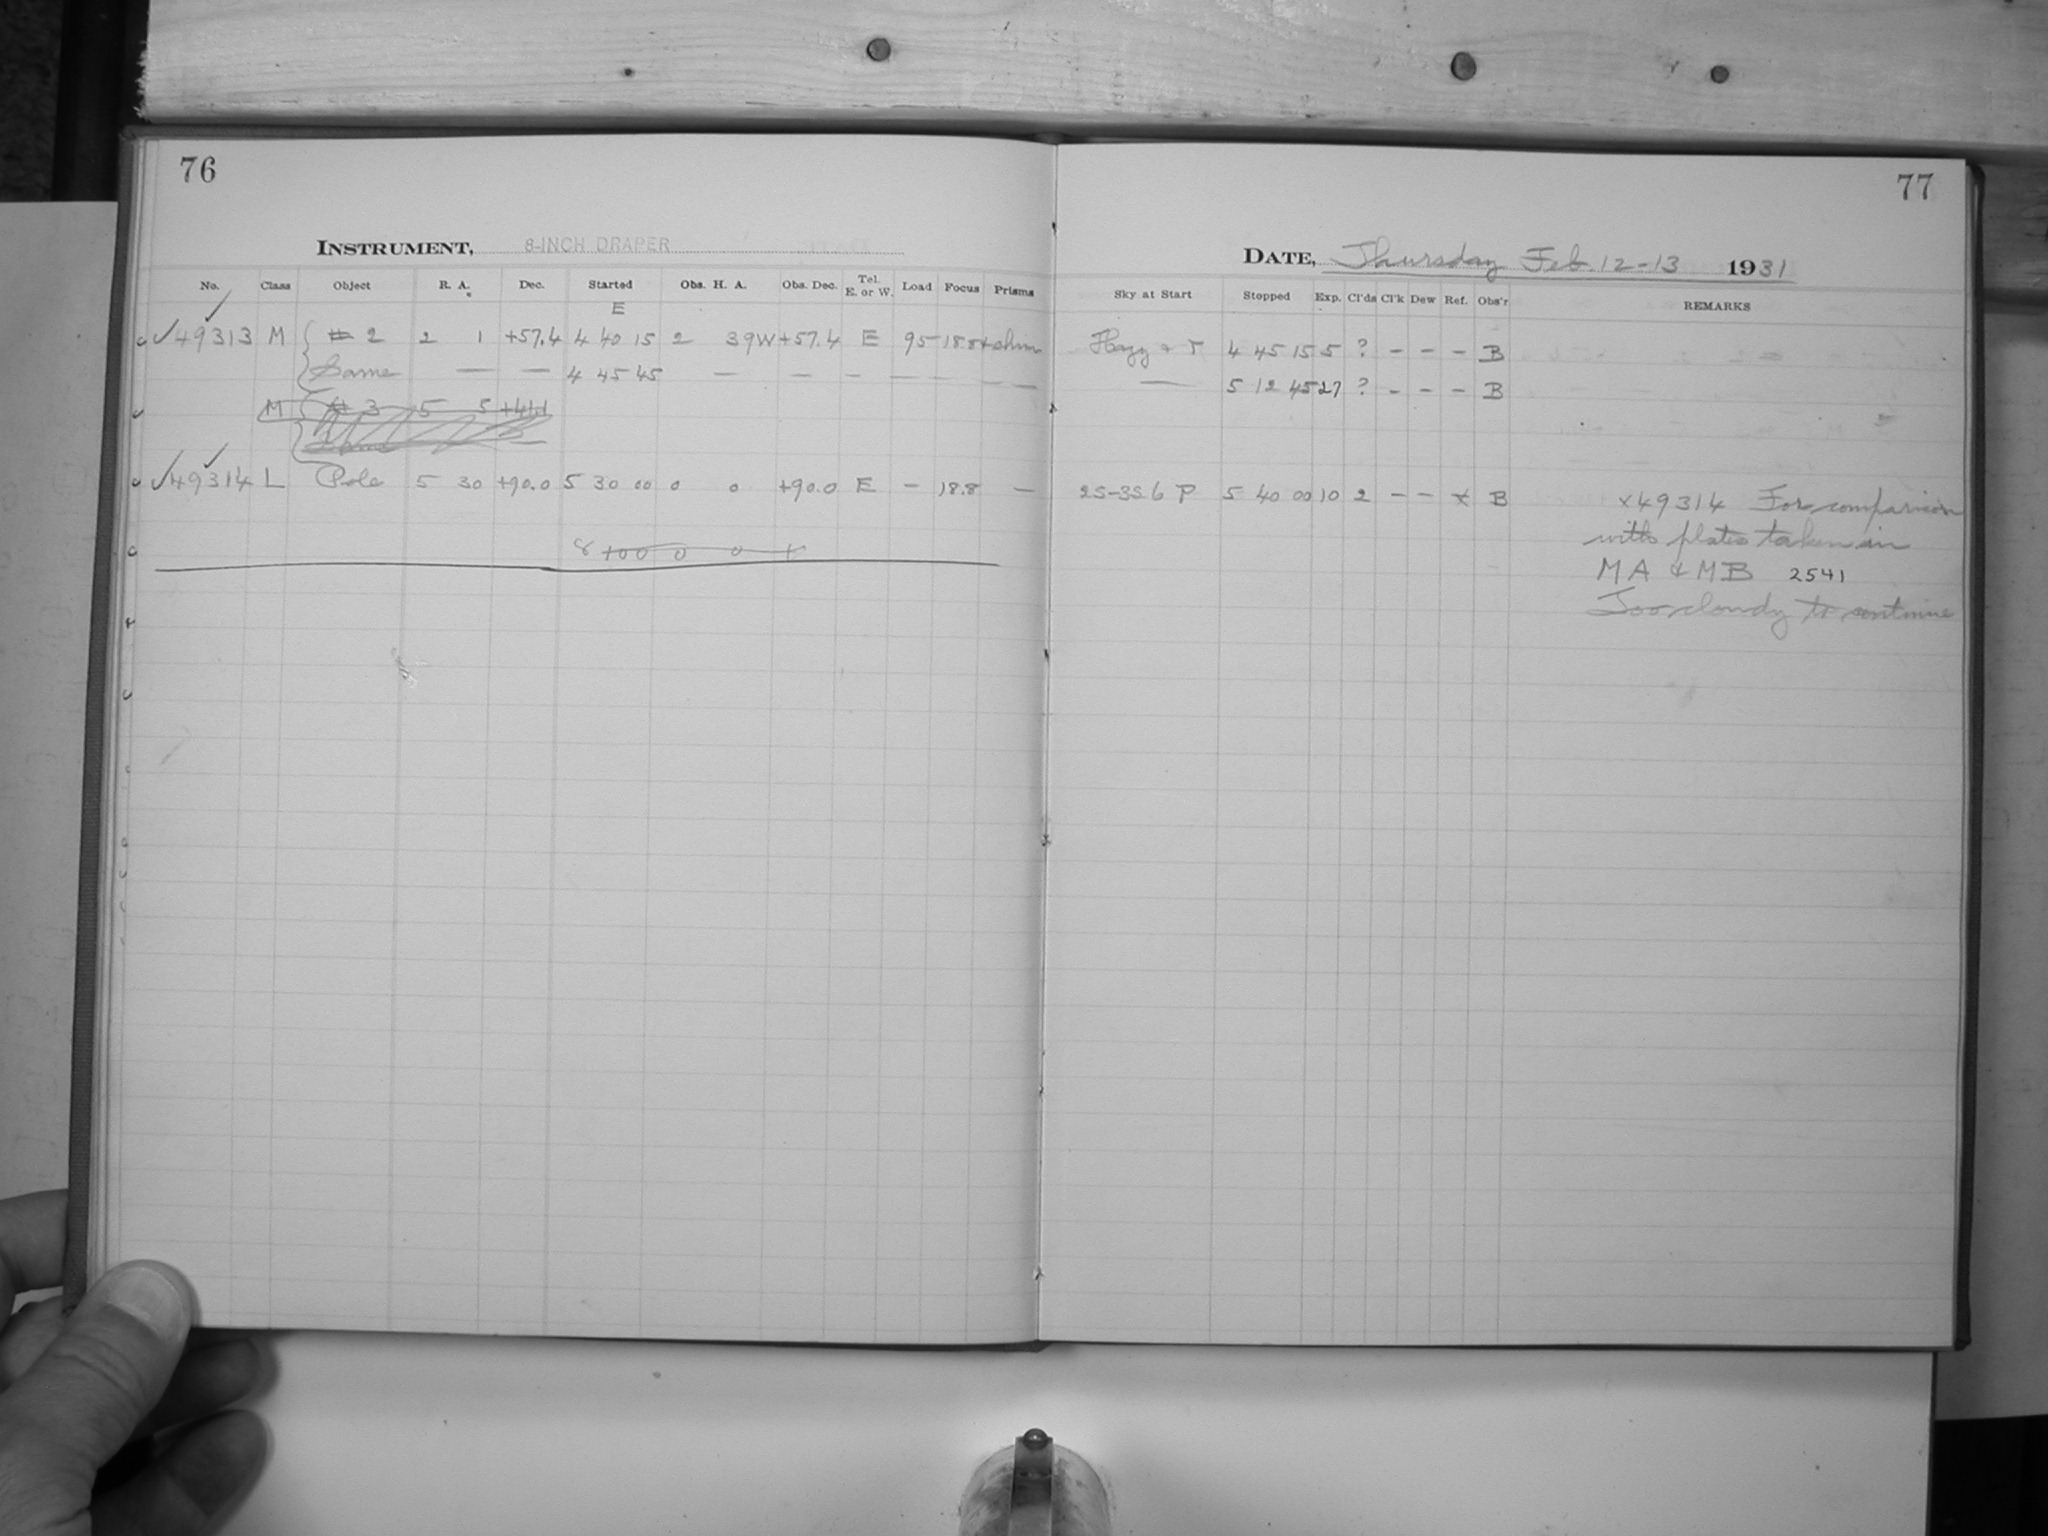 76
INSTRUMENT, 8-INCH DRAPER
No. Class Object R. A. Dec. Started Obs. H. A. Obs. Dec. Tel. E. or W. Load Focus Prisms
E
49313 M # 2 2 1 +57.4 4 40 15 2 39W +57.4 E 95 18.8
Same — — 4 45 45 — — — — — — —
M # 3 5 5
49314 L Pole 5 30 +90.0 5 30 00 0 0 +90.0 E — 18.8 —
77
DATE, Thursday Feb. 12-13 1931
Sky at Start Stopped Exp. Cl'ds Cl'k Dew Ref. Obs'r REMARKS
Hazy 4 45 15 5 ? - - - B
— 5 12 45 27 ? - - - B
2S-3S 6 P 5 40 00 10 2 - - x B x49314 For comparison
with plates taken in
MA & MB 2541
Too cloudy to continue